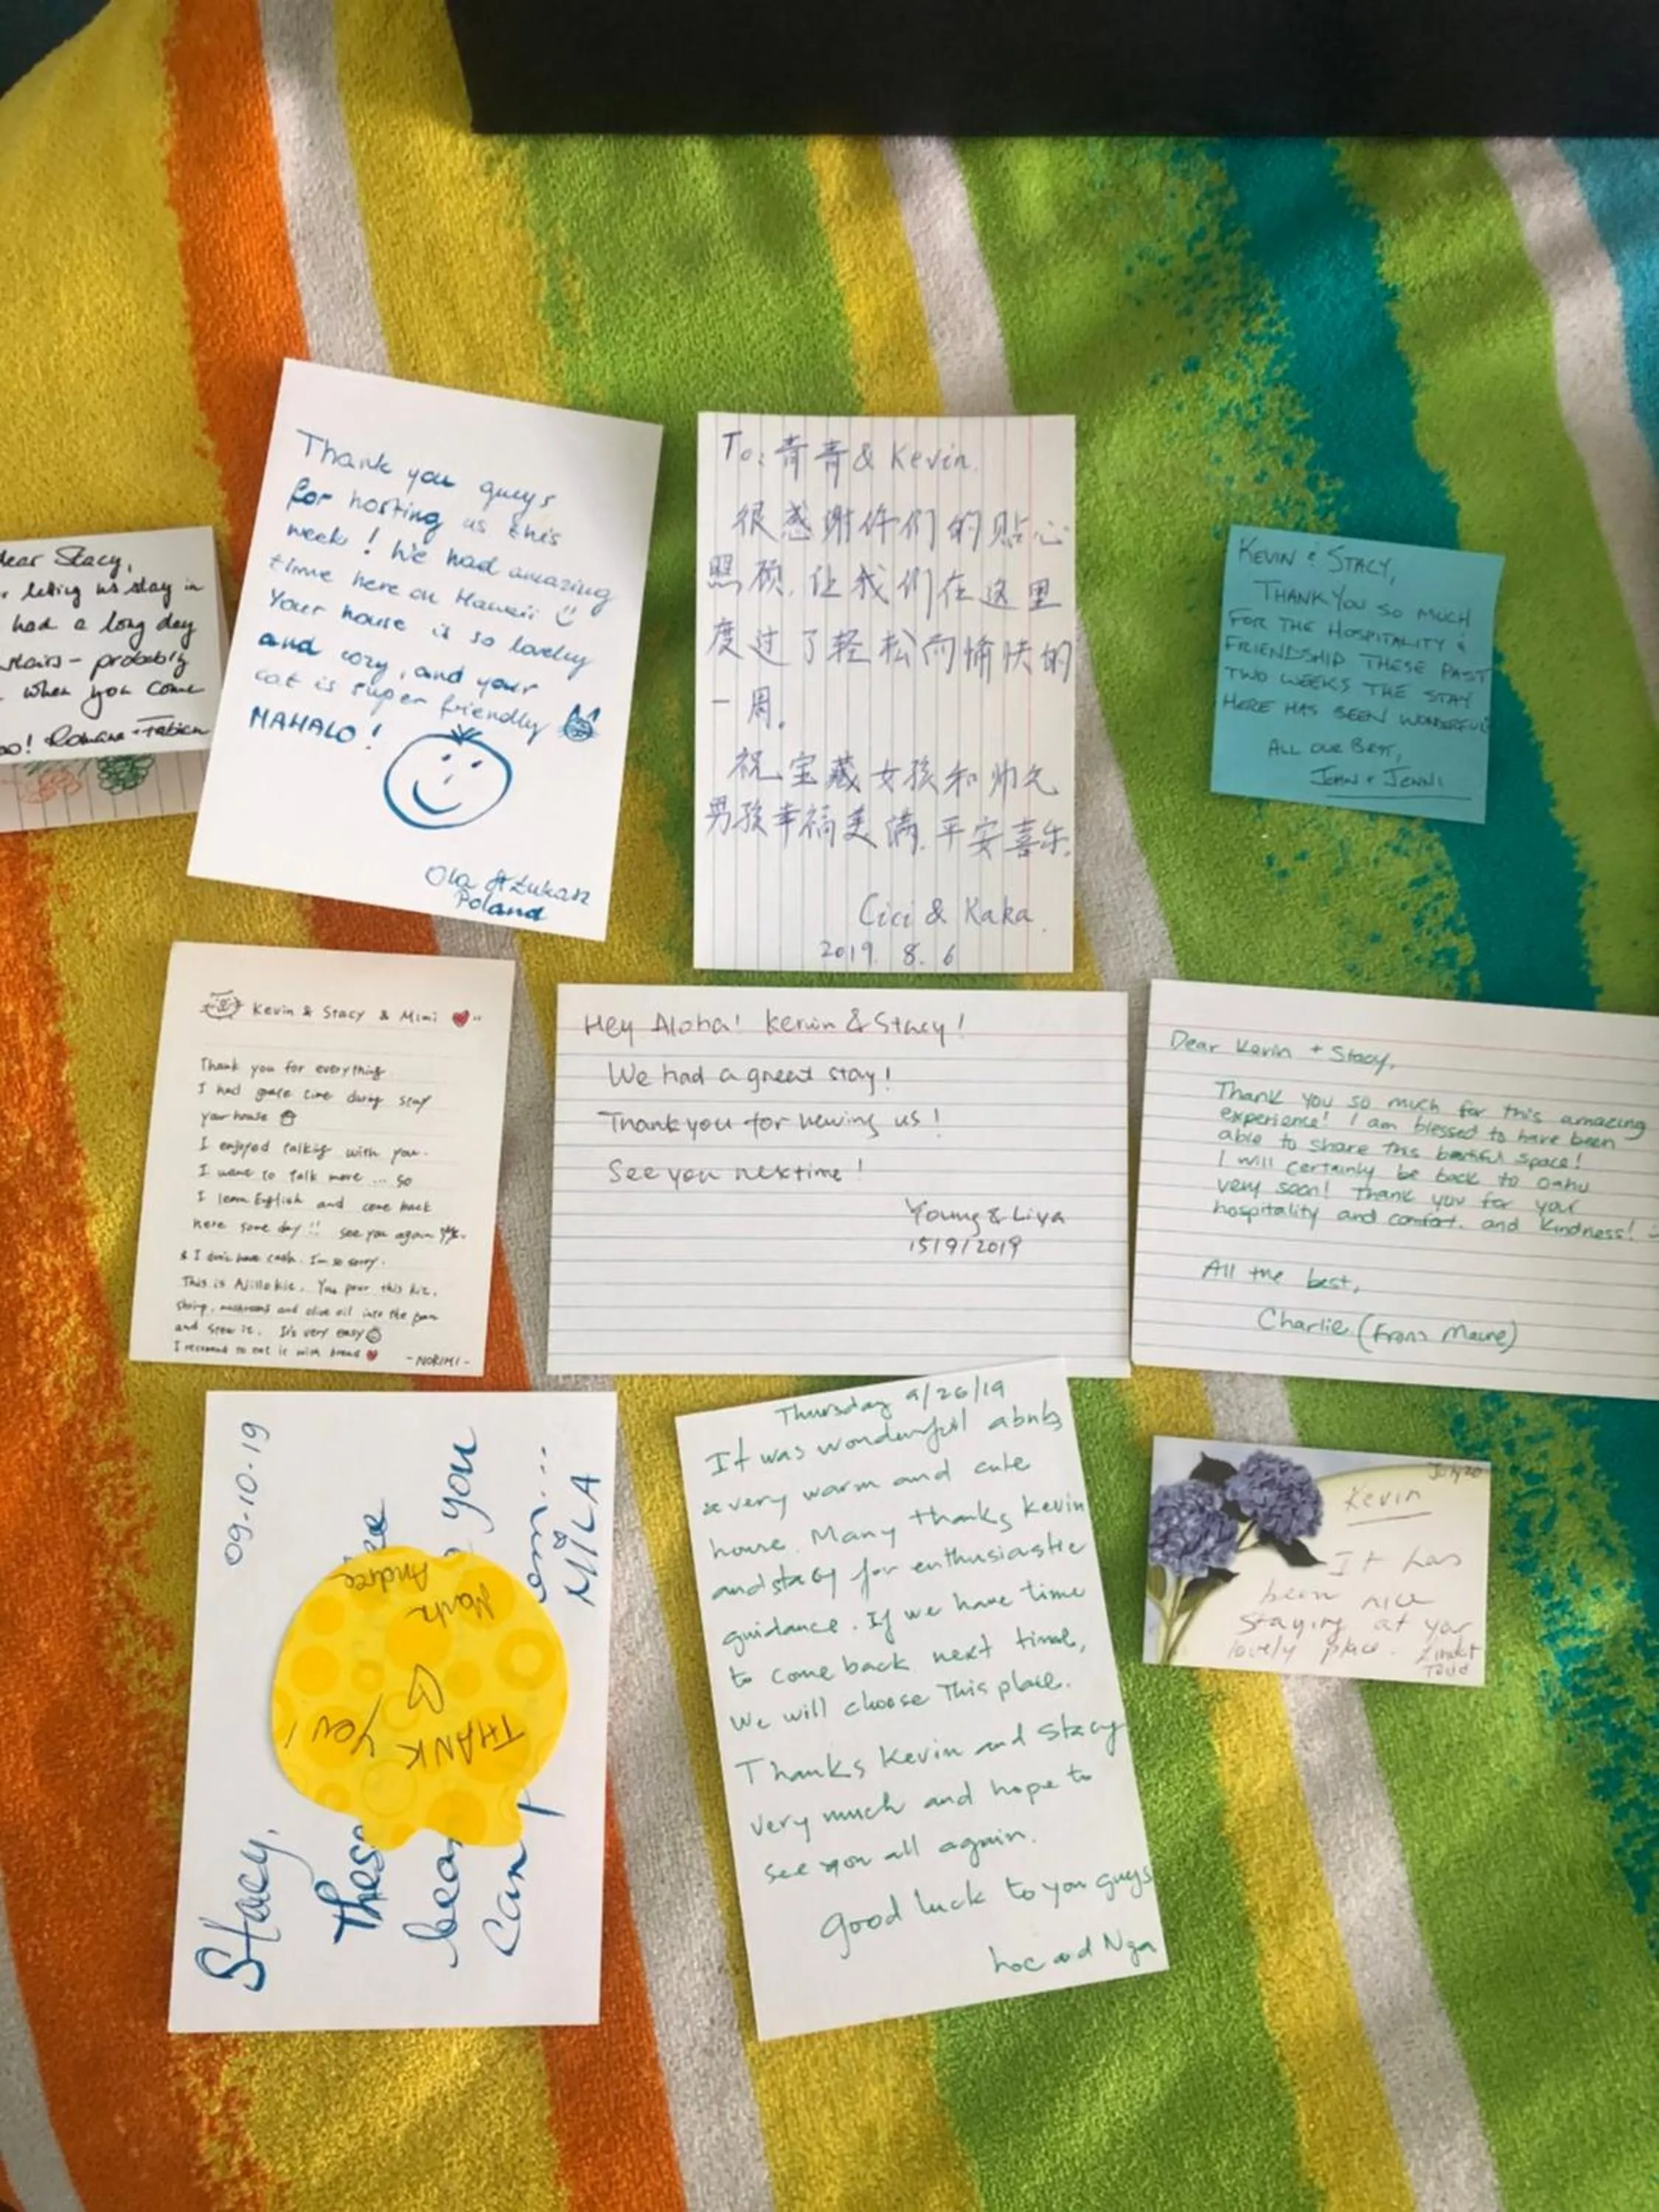 Dear Stacy,
letting us stay in
had a long day
stairs - probably
when you come
Romana + Fabian
Thank you guys
for hosting us this
week! We had amazing
time here on Hawaii
Your house is so lovely
and cozy, and your
cat is super friendly
MAHALO!
Ola & Łukasz
Poland
To: 青青 & Kevin.
很感谢你们的贴心
照顾,让我们在这里
度过了轻松而愉快的
一周。
祝宝藏女孩和帅气
男孩幸福美满.平安喜乐.
Cici & Kaka.
2019. 8. 6
KEVIN & STACY,
THANK YOU SO MUCH
FOR THE HOSPITALITY &
FRIENDSHIP THESE PAST
TWO WEEKS THE STAY
HERE HAS BEEN WONDERFUL
ALL OUR BEST,
JOHN + JENNI
Kevin & Stacy & Mimi
Thank you for everything.
I had time stay
your house
I enjoyed talking with you.
I want to talk more ... so
I learn English and come back
here some day!! see you again
& I don't have cash. I'm so sorry.
This is Ajillo kit. You pour this kit,
shrimp, mushrooms and olive oil into the pan
and stew it. It's very easy
I recomend to eat it with bread
- NORIMI -
Hey Aloha! Kevin & Stacy!
We had a great stay!
Thank you for having us!
See you nextime!
Young & Liya
15/9/2019
Dear Kevin + Stacy,
Thank you so much for this amazing
experience! I am blessed to have been
able to share this beautiful space!
I will certainly be back to Oahu
very soon! Thank you for your
hospitality and comfort. and kindness!
All the best,
Charlie (From Maine)
09-10-19
Stacy,
These
you
can
MILA
THANK
YOU!
Mark
Andree
Thursday 9/26/19
It was wonderful abnb
a very warm and cute
house. Many thanks Kevin
and stacy for enthusiastic
guidance. If we have time
to come back next time,
We will choose This place.
Thanks Kevin and Stacy
very much and hope to
see you all again.
Good luck to you guys
Loc and Nga
July 20
Kevin
It has
been nice
staying at your
lovely place.
Todd